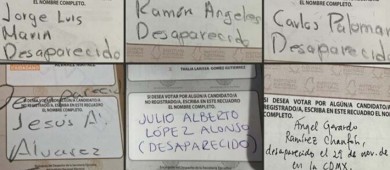 EL NOMBRE COMPLETO.
Jorge Luis
Marin
Desaparecido
EL NOMBRE COMPLETO.
Ramón Angeles
Desaparecido
EL NOMBRE COMPLETO.
Carlos Palomar
Desaparecido
Jesus A.
Alvarez
SI DESEA VOTAR POR ALGÚN/A CANDIDATO/A
NO REGISTRADO/A, ESCRIBA EN ESTE RECUADRO
EL NOMBRE COMPLETO.
JULIO ALBERTO
LÓPEZ ALONSO
(DESAPARECIDO)
SI DESEA VOTAR POR ALGÚN/A CANDIDATO/A
REGISTRADO/A, ESCRIBA EN ESTE RECUADRO
COMPLETO.
Angel Gerardo
Ramírez Chanfón,
desaparecido el 29 de nov. de
en la CDMX.